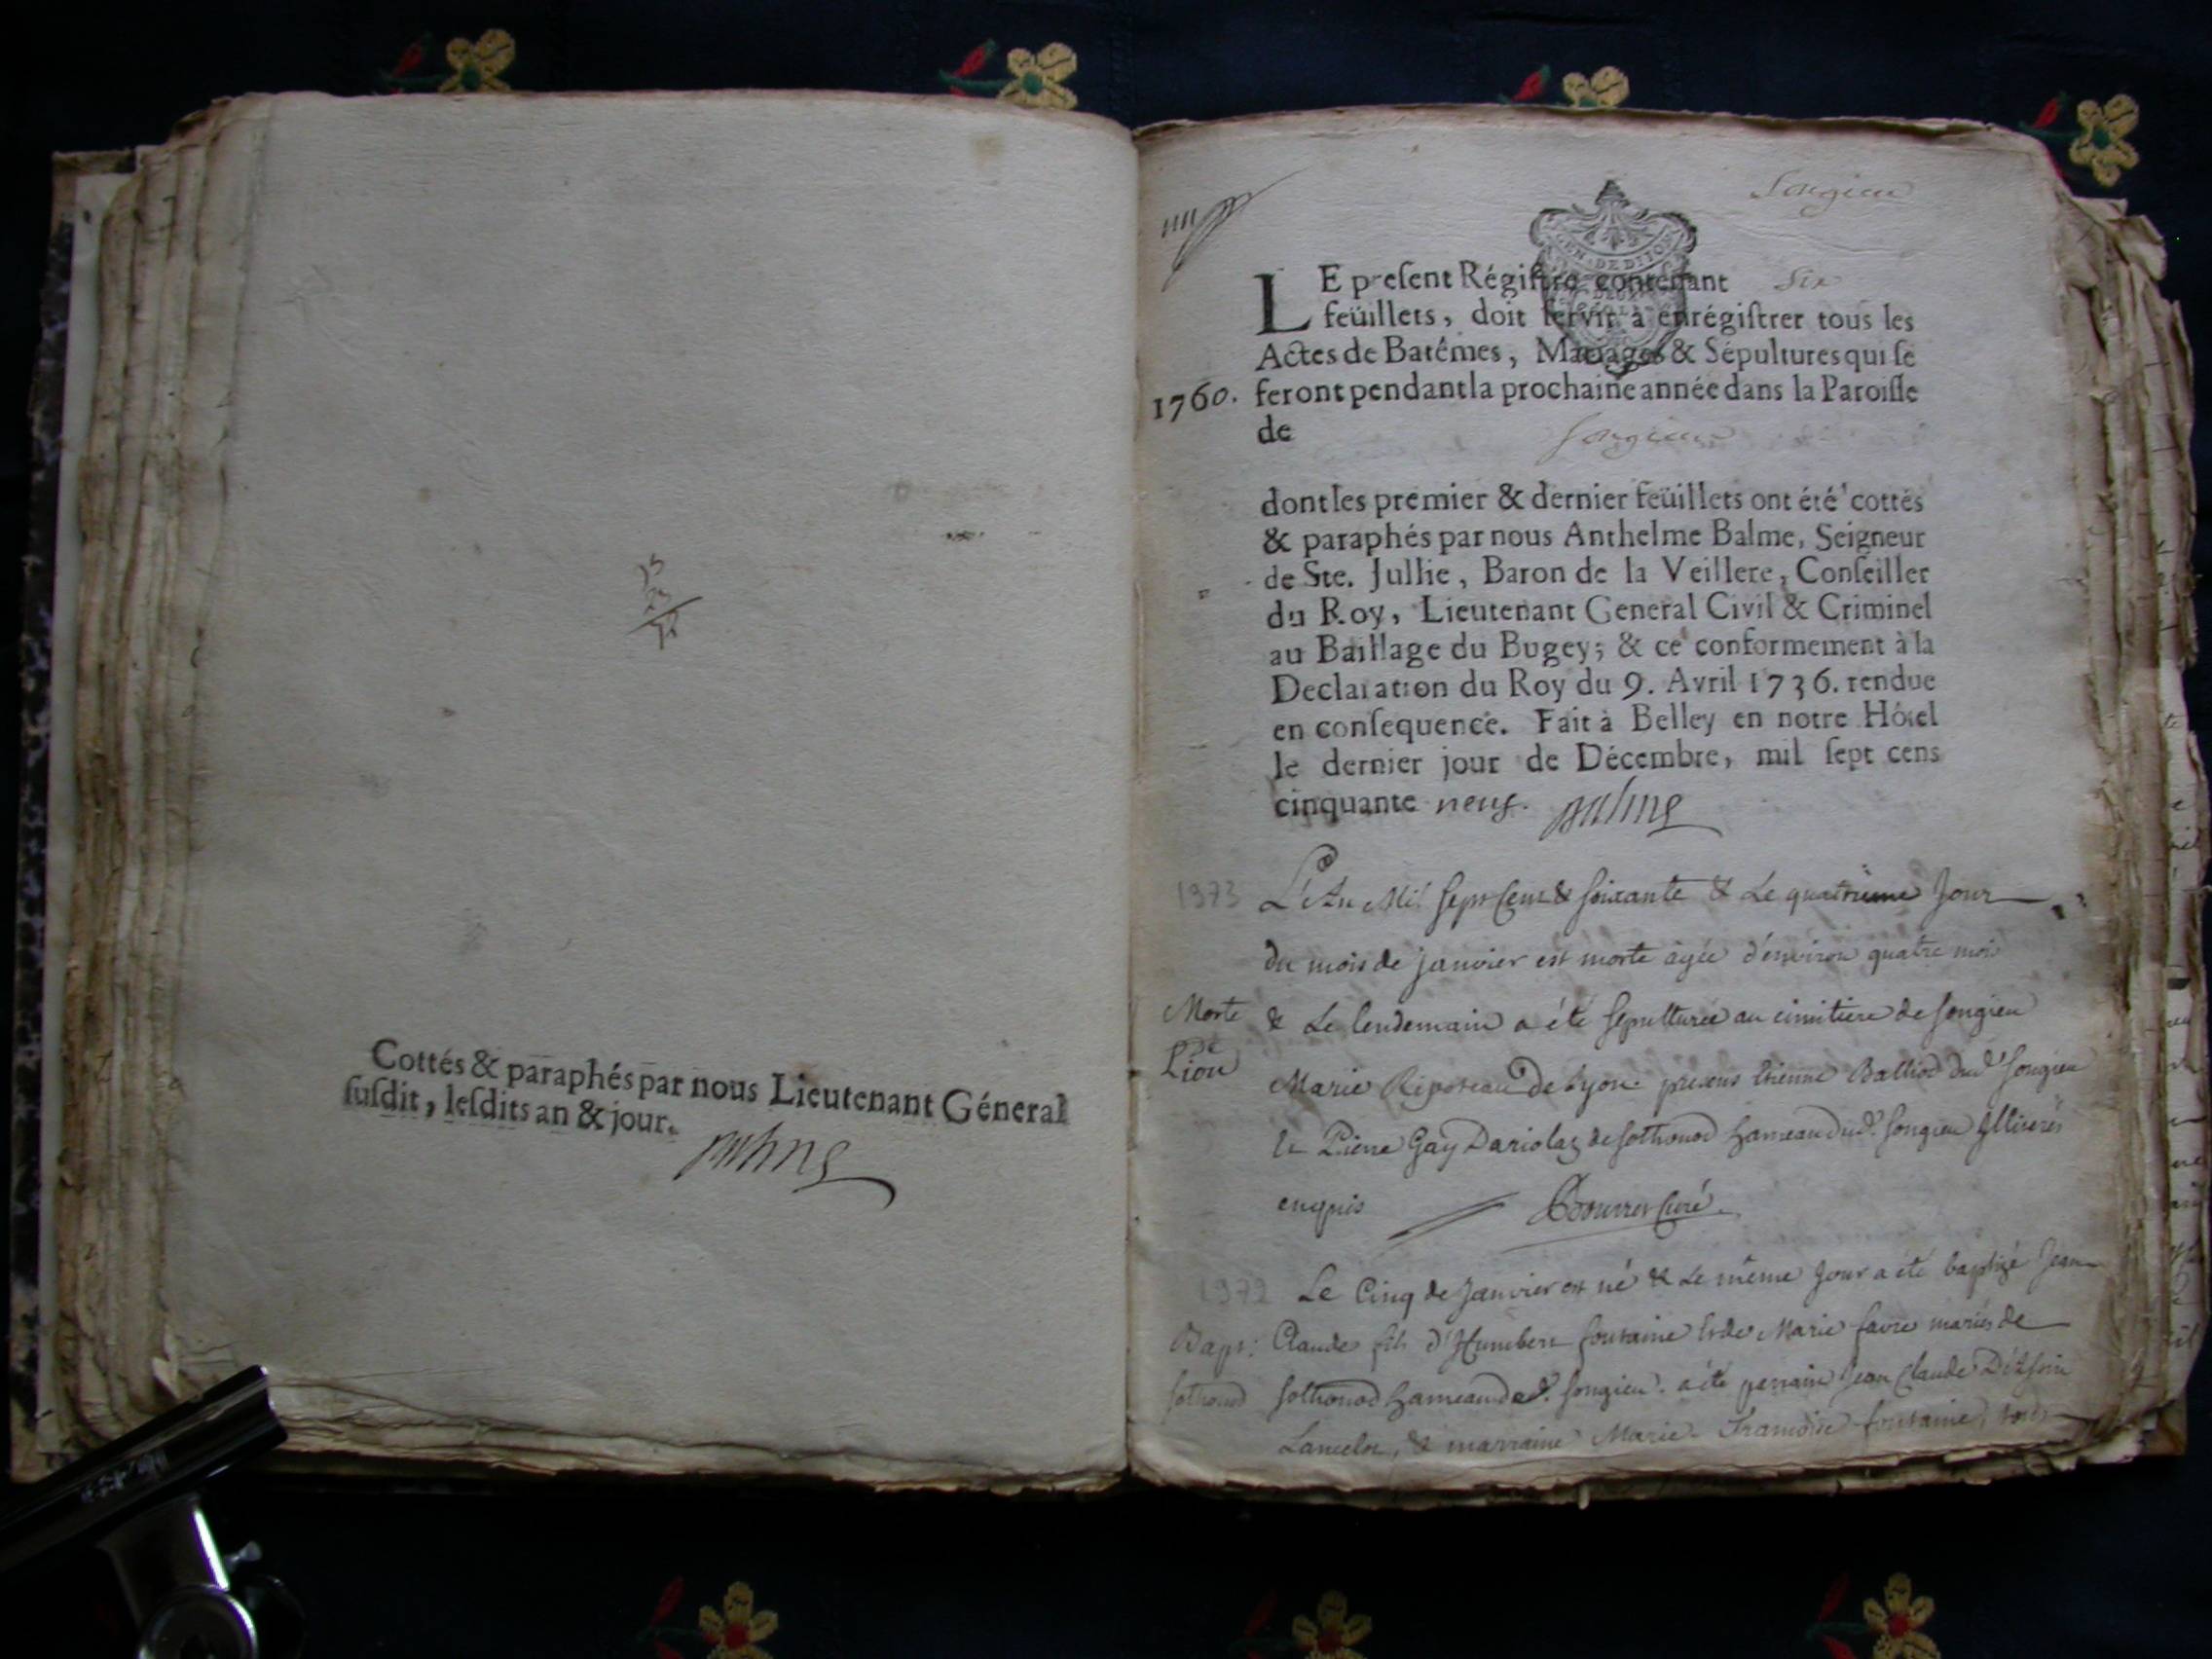 Cottés & paraphés par nous Lieutenant Géneral
ſuſdit, leſdits an & jour.
Balme
Songieu
LE preſent Régiſtre contenant six
feüillets, doit ſervir à enrégiſtrer tous les
Actes de Batêmes, Mariages & Sépultures qui ſe
1760. feront pendant la prochaine année dans la Paroiſſe
de Songieu
dont les premier & dernier feüillets ont été cottés
& paraphés par nous Anthelme Balme, Seigneur
de Ste. Jullie, Baron de la Veillere, Conſeiller
du Roy, Lieutenant General Civil & Criminel
au Baillage du Bugey; & ce conformement à la
Declaration du Roy du 9. Avril 1736. rendue
en conſequence. Fait à Belley en notre Hôtel
le dernier jour de Décembre, mil ſept cens
cinquante neuf. Balme
1973 L'An Mil sept Cent & soixante & Le quatrieme Jour
du mois de janvier est morte âgée d'environ quatre mois
Morte & Le lendemain a été sepulturée au cimitiere de songieu
de Lion Marie de Lyon presens Etienne Balliod dud songieu
Et Pierre Gay Dariolaz de sothonod hameau dud. songieu Illiterés
enquis Curé.
1972 Le Cinq de Janvier est né & Le même Jour a été baptizé Jean
Bapt: Claude fils d'Humbert fontaine Et de Marie favre mariés de
sothonod sothonod hameau de d. songieu. a été parrain Jean Claude
Lancelot, & marraine Marie Francoise fontaine, tous